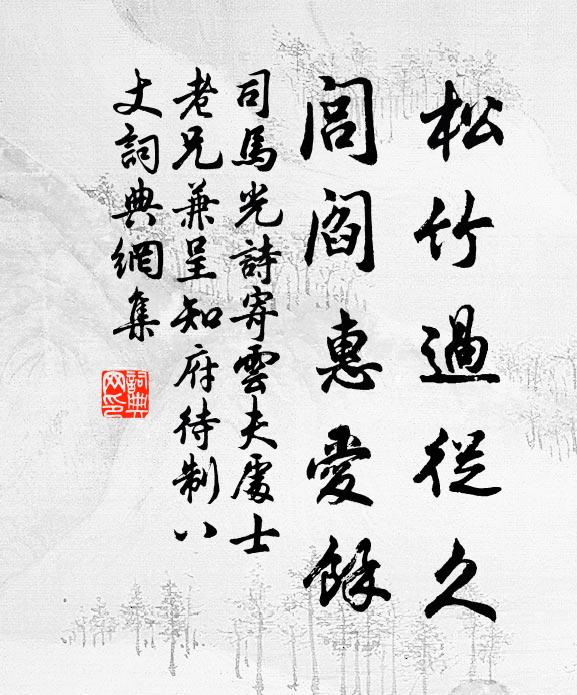 松竹過從久
閭閻惠愛餘
司馬光詩寄雲夫處士
老兄兼呈知府待制八
丈詞典網集
詞典網印